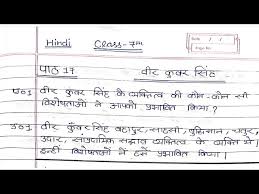 Hindi Class-7th
Date
Page No.
पाठ 17 वीर कुवर सिंह
प्र०1 वीर कुवर सिंह के व्यक्तित्व की कौन-कौन सी
विशेषताओं ने आपको प्रभावित किया?
उ०1 वीर कुँवर सिंह बहादुर, साहसी, बुद्धिमान, चतुर,
उदार, सांप्रदायिक सद्भाव व्यक्तित्व के व्यक्ति थे।
इन्हीं विशेषताओं ने हमें प्रभावित किया।